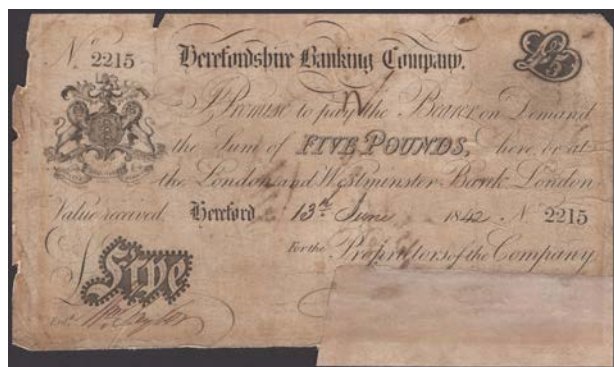 N. 2215
Herefordshire Banking Company.
£5
I Promise to pay the Bearer on Demand
the Sum of FIVE POUNDS, here, or at
the London and Westminster Bank London
Value received Hereford 13th June 1842 N. 2215
For the Proprietors of the Company
£ Five
Entd. Wm. Taylor